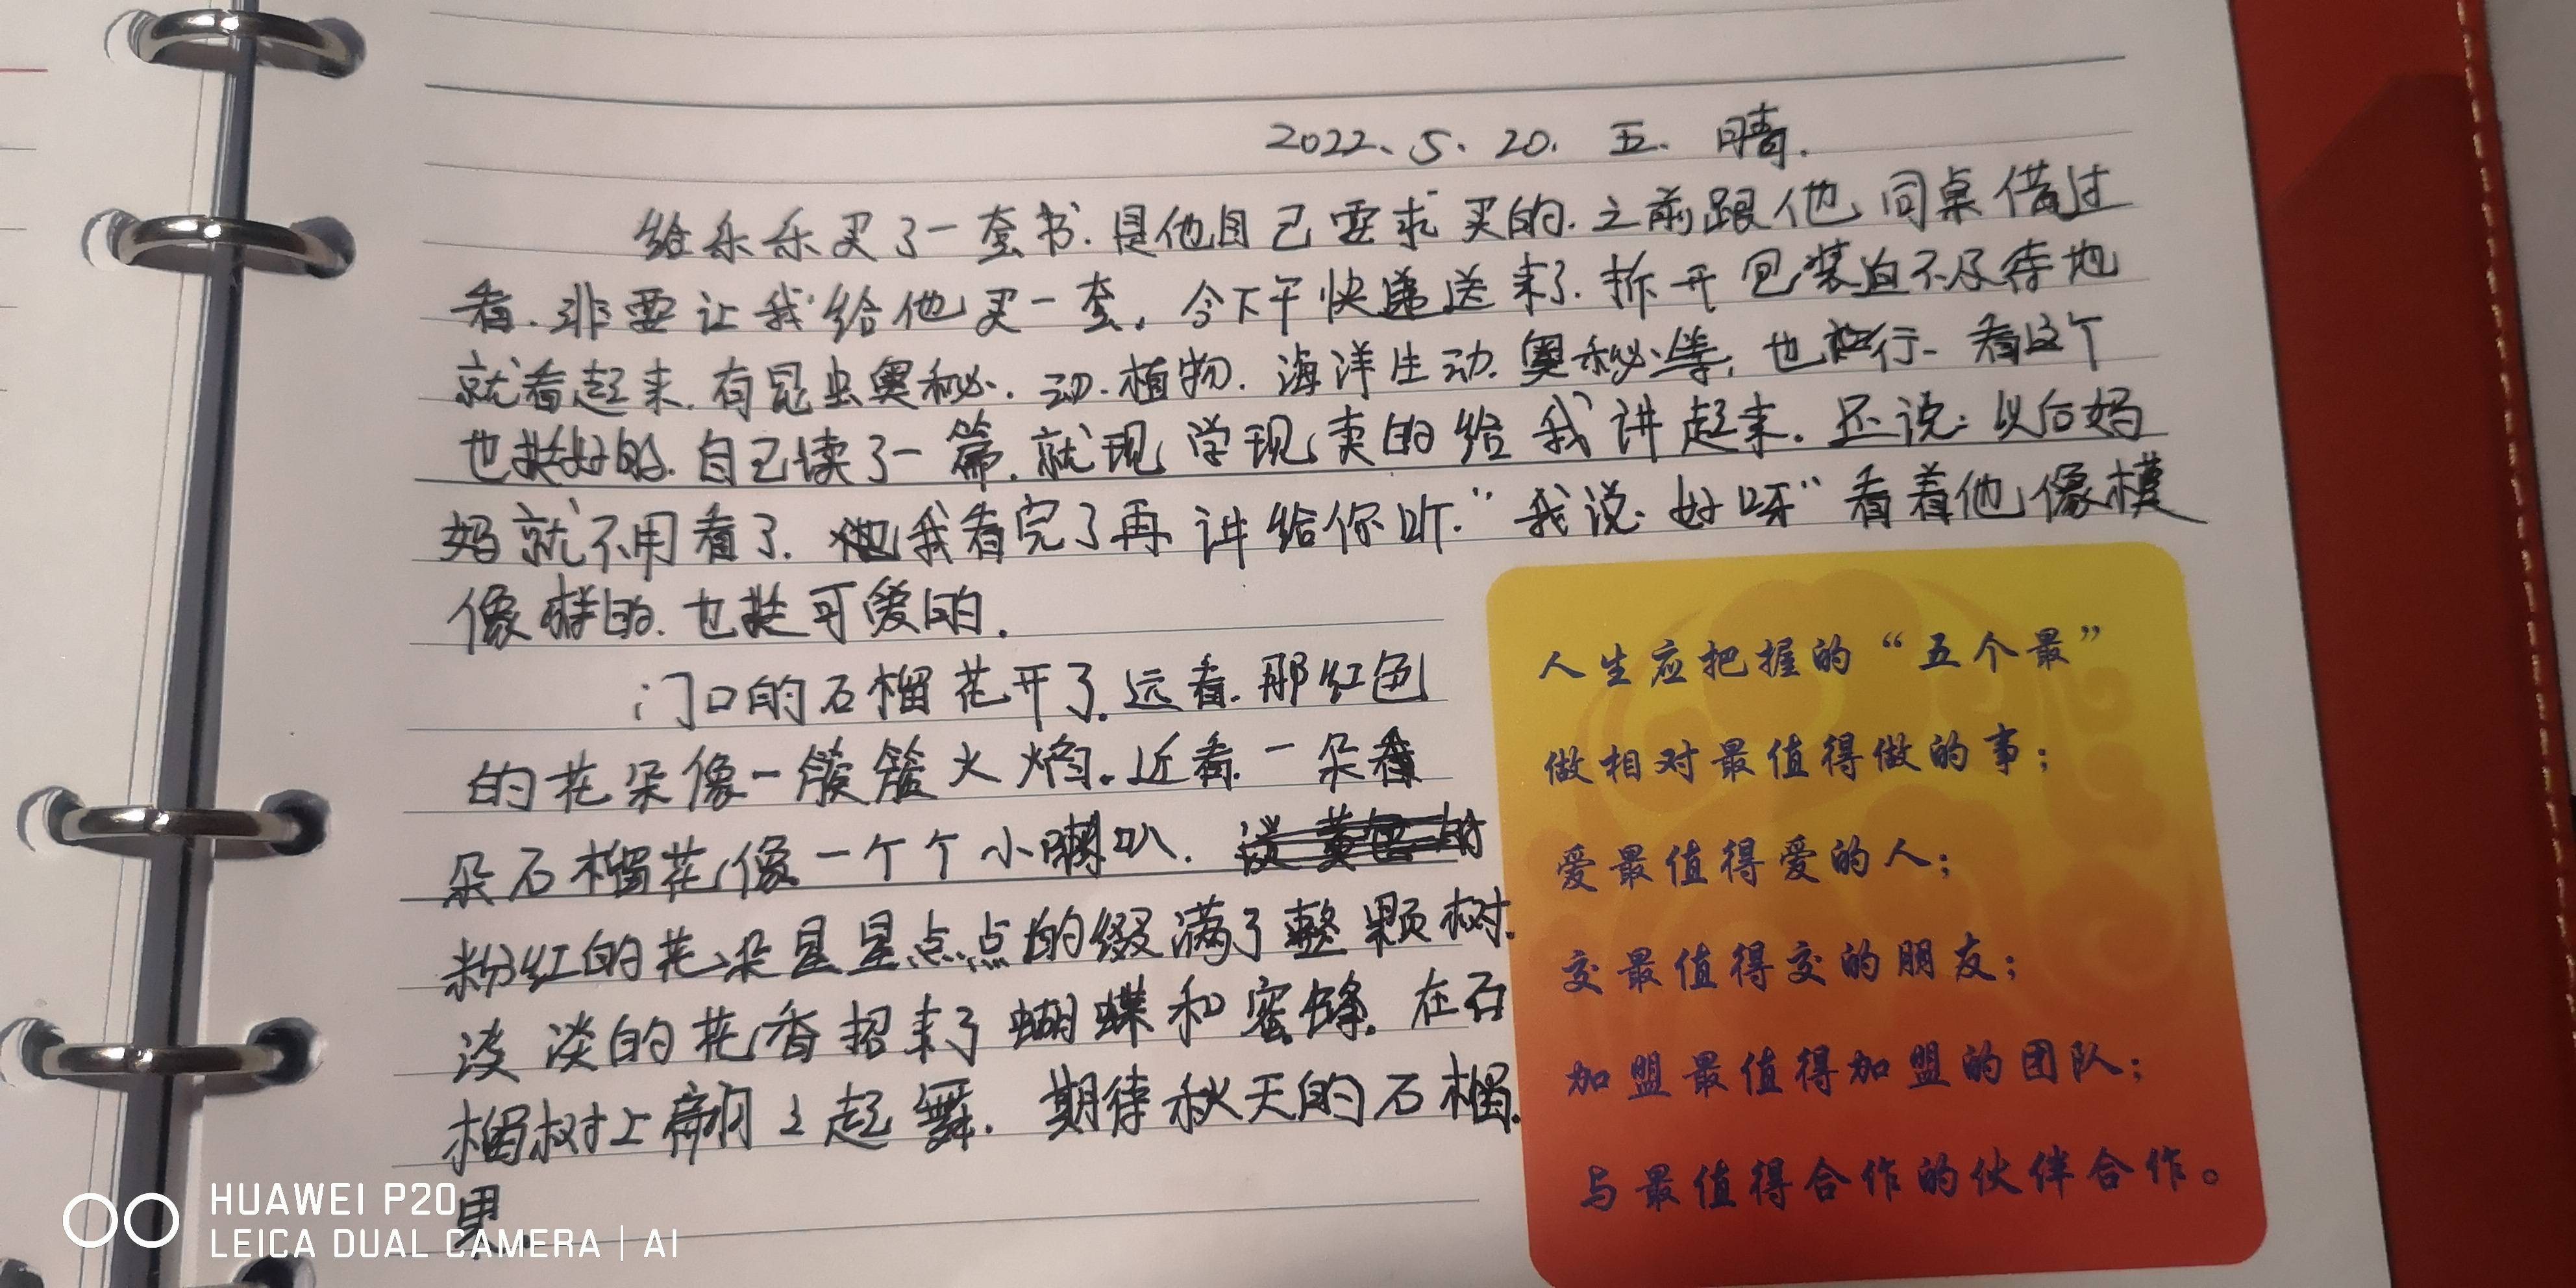 2022、5、20. 五. 晴.
给乐乐买了一套书.是他自己要求买的.之前跟他同桌借过
看.非要让我给他买一套。今下午快递送来了.拆开包装迫不及待地
就看起来.有昆虫奥秘、动.植物.海洋生动.奥秘等,也行.看这个
也挺好的.自己读了一篇.就现学现卖的给我讲起来.还说:以后妈
妈就不用看了.我看完了再讲给你听."我说.好呀"看着他像模
像样的.也挺可爱的.
门口的石榴花开了.远看.那红色
的花朵像一簇簇火焰.近看.一朵
朵石榴花像一个个小喇叭.
粉红的花朵星星点点的缀满了整颗树.
淡淡的花香招来了蝴蝶和蜜蜂.在石
榴树上翩翩起舞.期待秋天的石榴.
果.
人生应把握的“五个最”
做相对最值得做的事;
爱最值得爱的人;
交最值得交的朋友;
加盟最值得加盟的团队;
与最值得合作的伙伴合作。
HUAWEI P20
LEICA DUAL CAMERA | AI